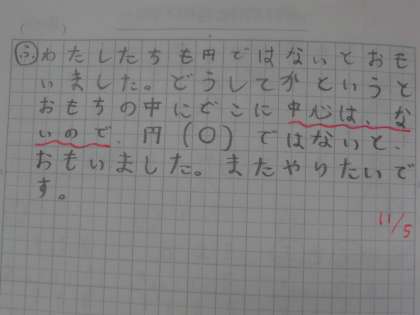 ふ わたしたちも円ではないとおも
いました。どうしてかというと
おもちの中にどこに中心は、な
いので、円(○)ではないと、
おもいました。またやりたいで
す。
11/5